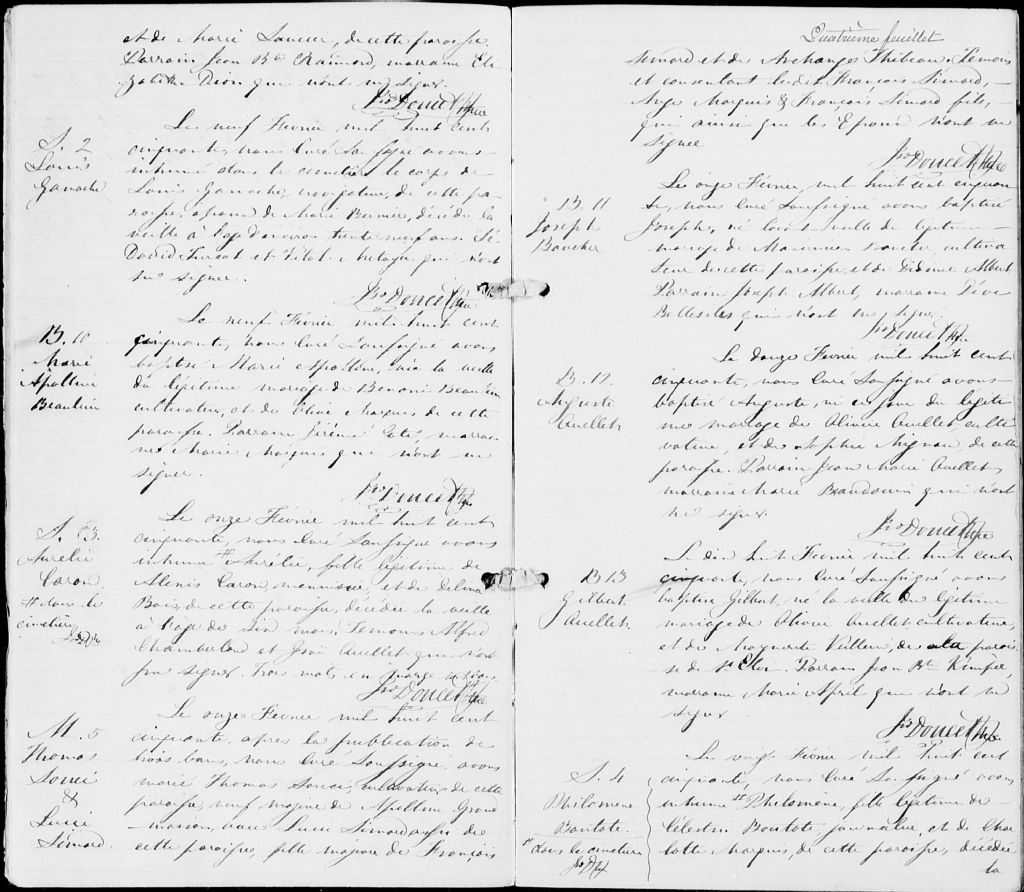 et de Marie Saucier, de cette paroisse.
Parrain Jean Bte Raimond, marraine Eli
zabeth Dion qui n'ont su signer.
Jos Doucet Ptre
S. 2
Louis
Ganache
Le neuf Février mil huit cent
cinquante, nous Curé Soussigné avons
inhumé dans le cimetière le corps de
Louis Ganache, navigateur, de cette pa-
roisse, époux de Marie Bernier, décédé la
veille à l'age d'environ trente neuf ans. Té.
David et Vital qui n'ont
su signer.
Jos Doucet Ptre
B. 10
Marie
Apolline
Beaulieu
Le neuf Février mil huit cent
cinquante, nous Curé Soussigné avons
baptisé Marie Apolline, née la veille
du légitime mariage de Benoni Beaulieu
cultivateur, et de Olive Marquis de cette
paroisse. Parrain Jérémie Coté, marrai-
ne Marie Marquis qui n'ont su
signer.
Jos Doucet Ptre
S. 3.
Aurelie
Caron
# dans le
cimetière
Le onze Février mil huit cent
cinquante, nous Curé Soussigné avons
inhumé # Aurélie, fille légitime de
Alexis Caron, menuisier, et de Delina
Bois, de cette paroisse, décédée la veille
à l'age de six mois. Témoins Alfred
Chamberland et José Ouellet qui n'ont
su signer. Trois mots en marge
Jos Doucet Ptre
M. 5
Thomas
Soucí
&
Luce
Simard.
Le onze Février mil huit cent
cinquante, après la publication de
trois bans, nous Curé Soussigné, avons
marié Thomas Soucí, cultivateur de cette
paroisse, veuf majeur de Apolline Grond-
maison, avec Luce Simard aussi de
cette paroisse, fille majeure de François
Quatrième feuillet
Simard et de Archange Thibeau. Témoins
et consentant le dit François Simard,
Ange Marquis & François Simard fils,
qui ainsi que les Epoux n'ont su
signer
Jos Doucet Ptre
B. 11
Joseph
Boucher
Le onze Février, mil huit cent cinquan
te, nous Curé Soussigné avons baptisé
Joseph, né l'avant-veille du légitime
mariage de Maximien Boucher, cultiva-
teur de cette paroisse, et de Albert
Parrain Joseph Albert, marraine
Bellesiles qui n'ont su signer.
Jos Doucet Ptre
B. 12.
Auguste
Ouellet
Le douze Février mil huit cent
cinquante, nous Curé Soussigné avons
baptisé Auguste, né ce jour du légiti
me mariage de Olivier Ouellet culti
vateur, et de Sophie Mignau, de cette
paroisse. Parrain Jean Marie Ouellet
marraine Marie Beaudouin qui n'ont
su signer.
Jos Doucet Ptre
B 13
Gilbert
Ouellet
Le dix huit Février mil huit cent
cinquante, nous Curé Soussigné avons
baptisé Gilbert, né la veille du légitime
mariage de Olivier Ouellet cultivateur,
et de Marguerite de la parois
se de St Eloi. Parrain Jean Bte
marraine Marie April qui n'ont su
signer
Jos Doucet Ptre
S. 4
Philomene
Boutote.
# dans le cimetière
Le vingt Février mil huit cent
cinquante, nous Curé Soussigné avons
inhumé # Philomène, fille légitime de
Célestin Boutote, journalier, et de Char
lotte Marquis, de cette paroisse, décédée
la